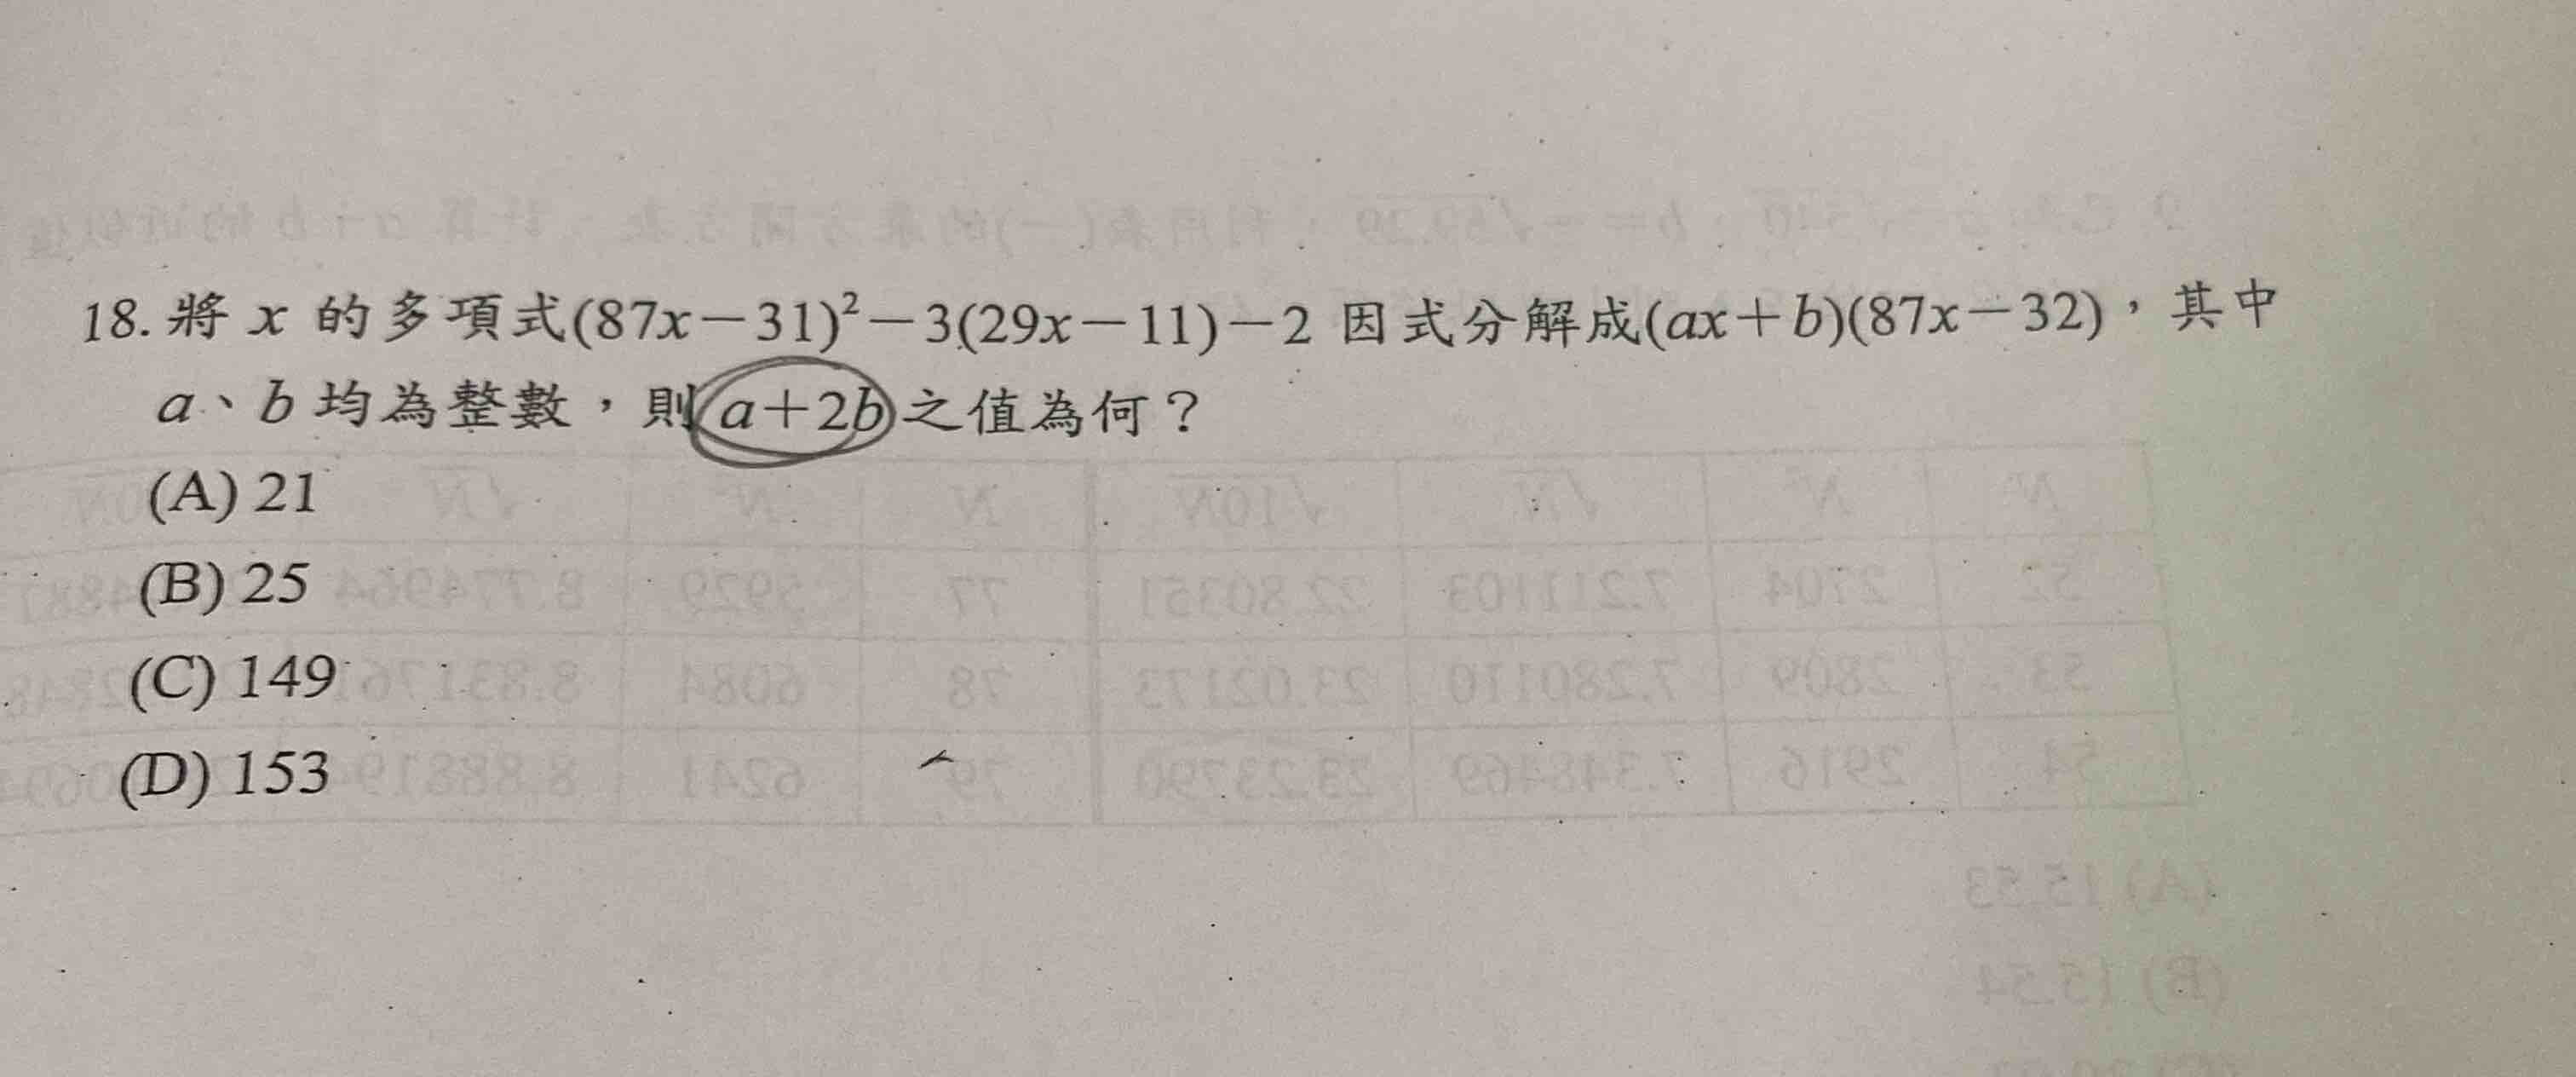 18. 將 x 的多項式(87x－31)²－3(29x－11)－2 因式分解成(ax＋b)(87x－32)，其中
a、b 均為整數，則 a＋2b 之值為何？
(A) 21
(B) 25
(C) 149
(D) 153